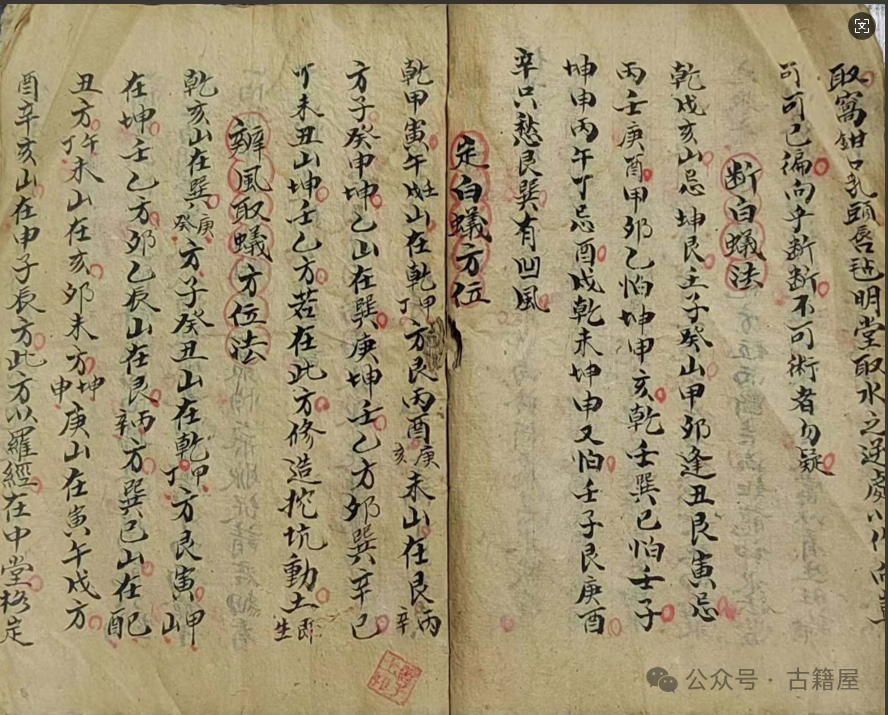 取窩鉗口乳頭唇毡明堂取水之逆處小作向
可可已徧向乎断断不可術者勿疑
断白蟻法
乾戌亥山忌坤艮壬子癸山甲卯逢丑艮寅忌
丙壬庚酉甲卯乙怕坤申亥乾壬巽巳怕壬子
坤申丙午丁忌酉戌乾未坤申又怕壬子艮庚酉
辛只愁艮巽有凹風
定白蟻方位
乾甲寅午戌壬山在乾甲丁方艮丙酉庚亥未山在艮丙辛
方子癸申坤乙山在巽庚坤壬乙方卯巽辛巳
丁未丑山坤壬乙方若在此方修造挖坑動土即生
辦風取蟻方位法
乾亥山在巽庚癸方子癸丑山在乾甲丁方艮寅甲山
在坤壬乙方卯乙辰山在艮丙辛方巽巳山在酉
丑方午丁未山在亥卯未方坤申庚山在寅午戌方
酉辛亥山在申子辰方此方以羅經在中堂格定
公众号·古籍屋